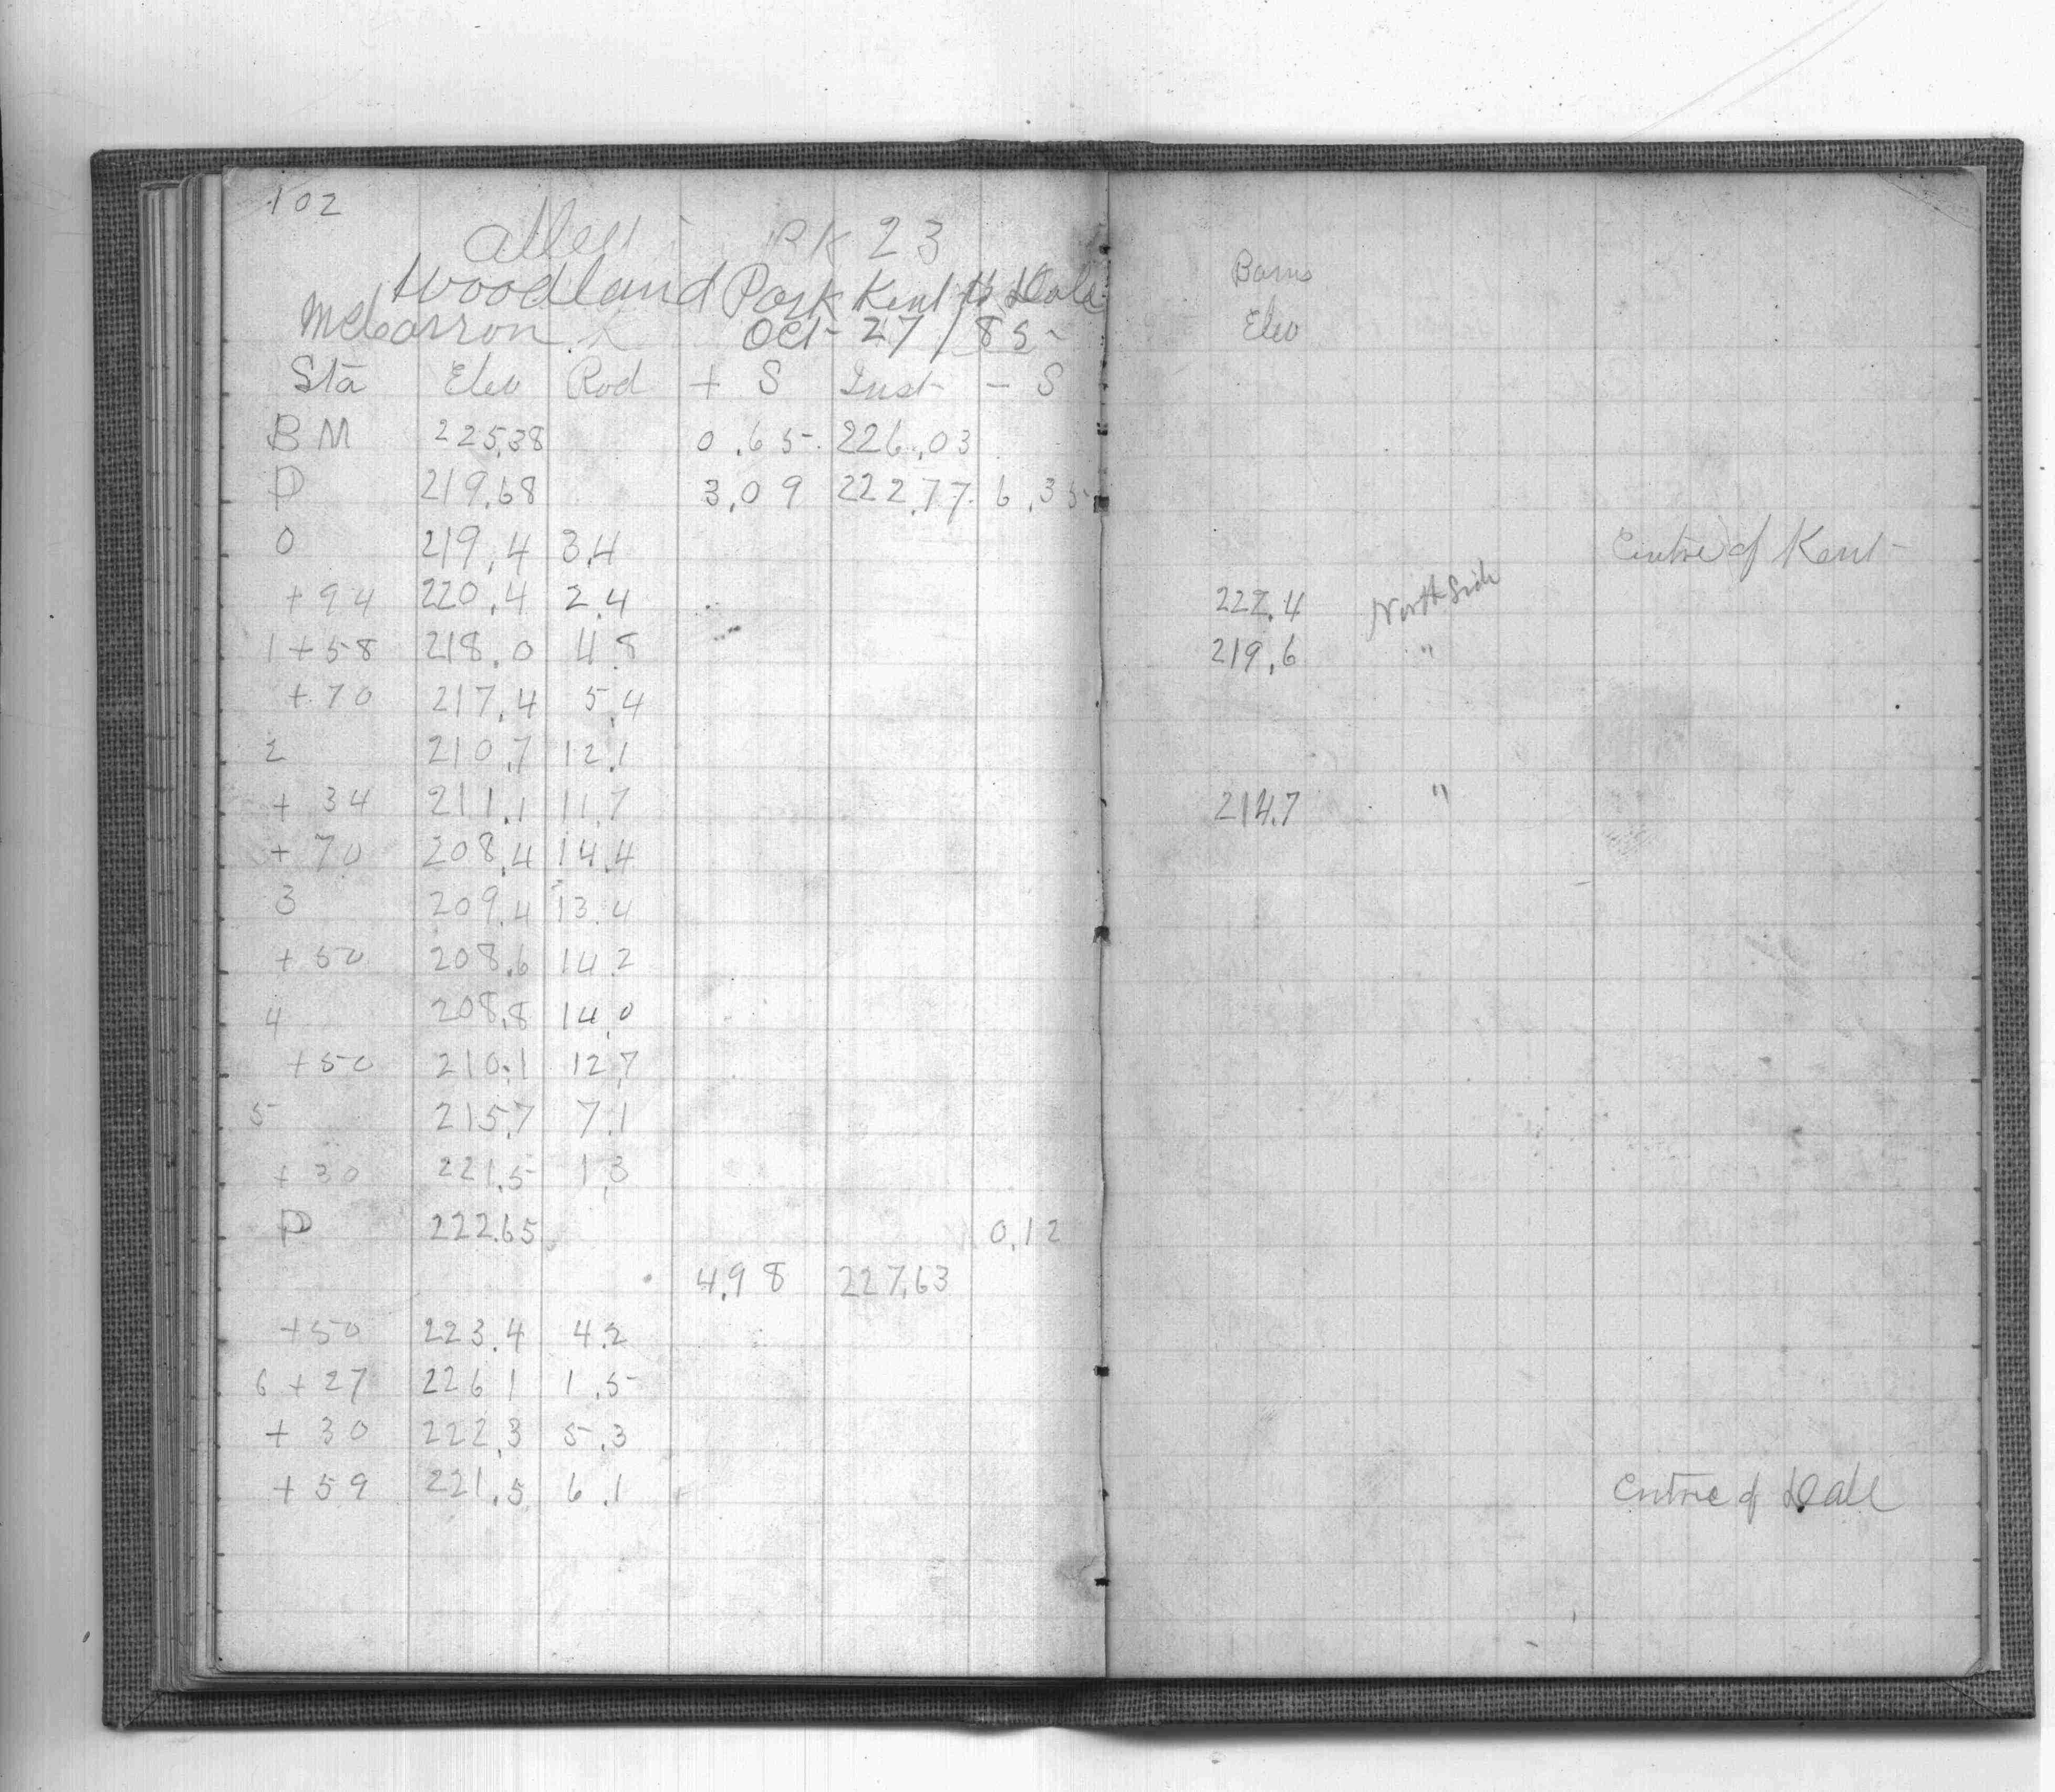 102
Alley BK 23
Woodland Park Kent to Dale
McCarron Oct 27/85
Sta Elev Rod + S Inst - S
BM 225.38 0.65 226.03
P 219.68 3.09 222.77 6.35
0 219.4 3.4 Centre of Kent
+94 220.4 2.4 222.4 North Side
1+58 218.0 4.8 219.6 "
+70 217.4 5.4
2 210.7 12.1
+34 211.1 11.7 214.7 "
+70 208.4 14.4
3 209.4 13.4
+50 208.6 14.2
4 208.8 14.0
+50 210.1 12.7
5 215.7 7.1
+30 221.5 1.3
P 222.65 0.12
4.98 227.63
+50 223.4 4.2
6+27 226.1 1.5
+30 222.3 5.3
+59 221.5 6.1 Centre of Dale
Barns
Elev